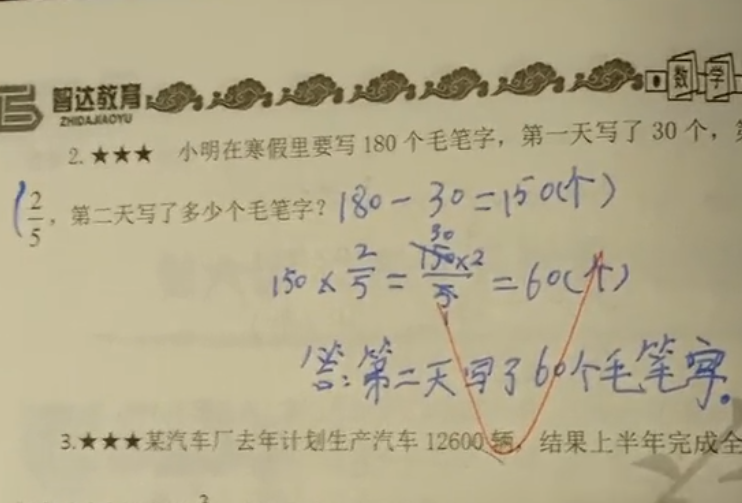 智达教育 数学
ZHIDAJIAOYU
2.★★★ 小明在寒假里要写180个毛笔字，第一天写了30个，
2/5，第二天写了多少个毛笔字？180-30=150(个)
150×2/5=150×2/5=60(个)
30
答：第二天写了60个毛笔字。
3.★★★某汽车厂去年计划生产汽车12600辆，结果上半年完成全